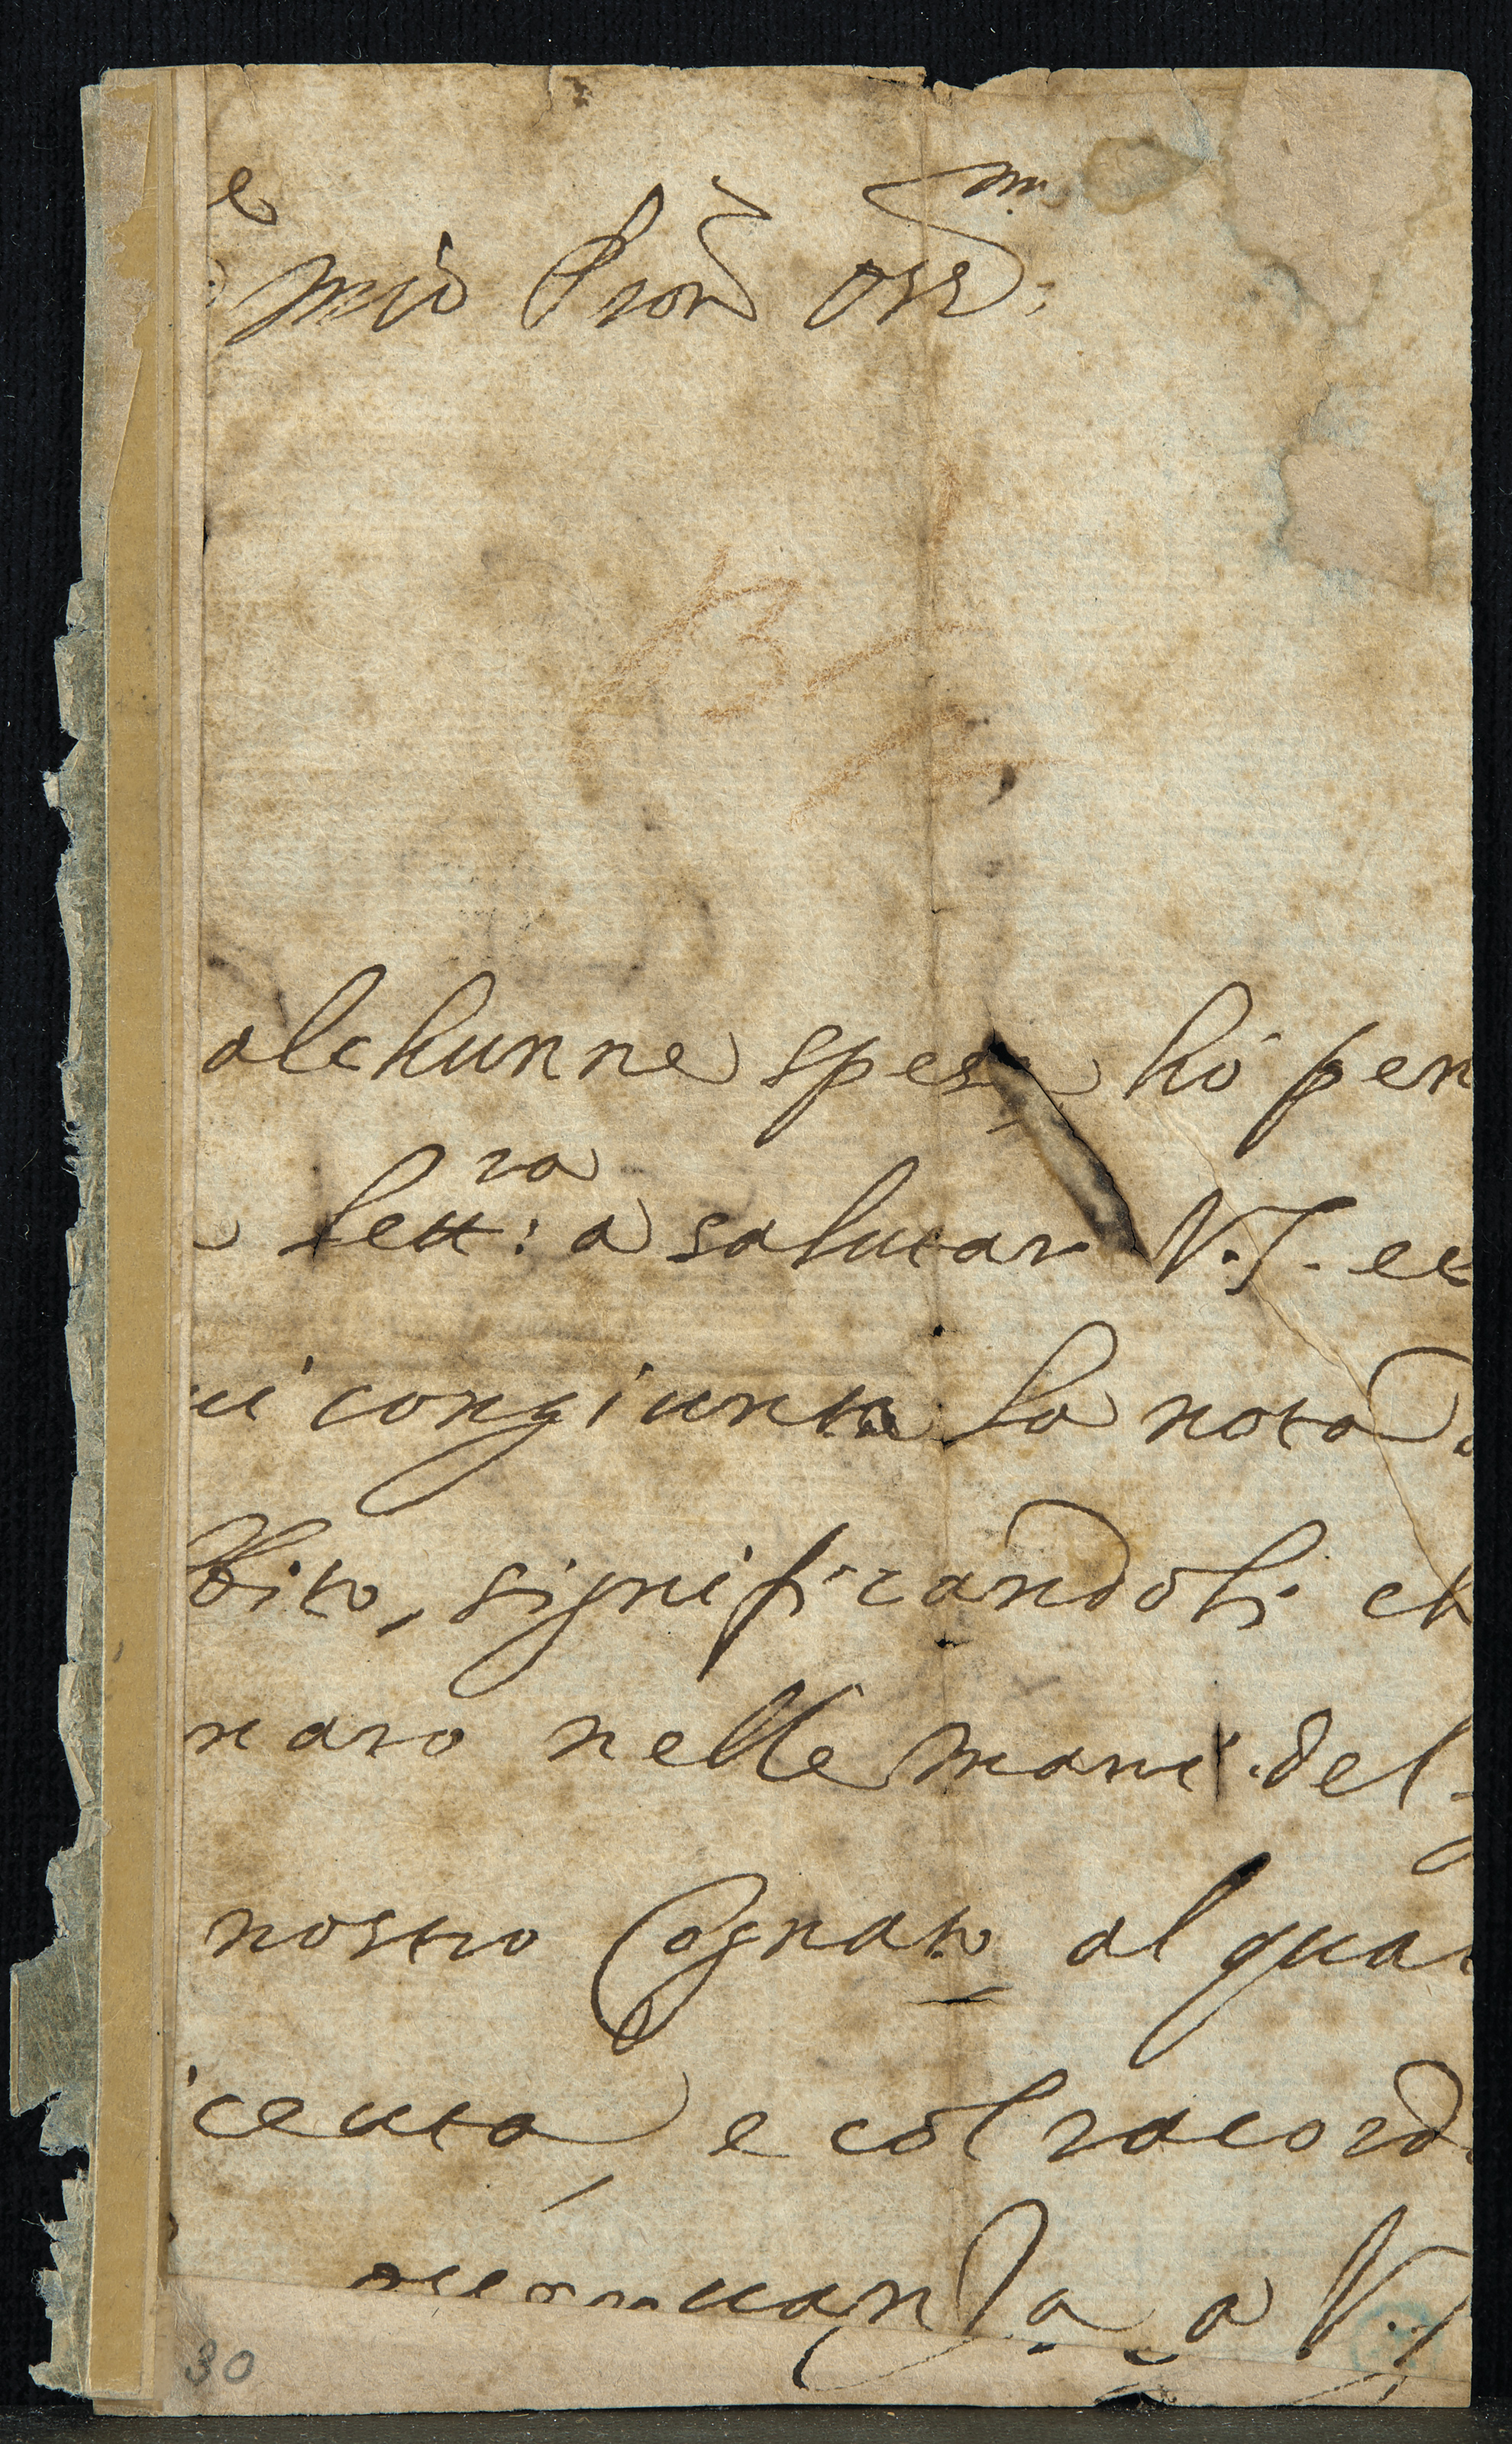 e
mio Pron oss:mo
alchunne spese hò per
lett:ra a salutar V.S. et
ui congiunta la nota d
bito, significandoli ch
naro nelle mani del
nostro Cognato al qual
iceuta, e col racord
a V.S
30